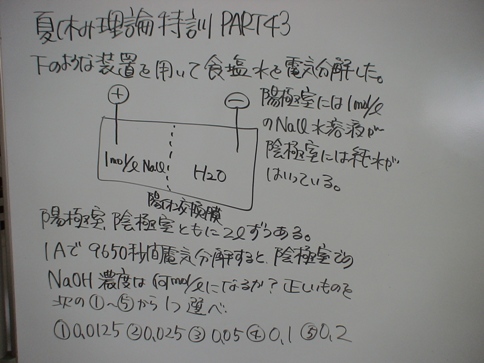 夏休み理論特訓 PART43
下のような装置を用いて食塩水を電気分解した。
⊕
⊖
陽極室には1mol/ℓ
のNaCl水溶液が
陰極室には純水が
はいっている。
1mol/ℓ NaCl
H2O
陽イオン交換膜
陽極室、陰極室ともに2ℓずつある。
1Aで9650秒間電気分解すると、陰極室での
NaOH濃度は何mol/ℓになるか?正しいものを
次の①〜⑤から1つ選べ
①0.0125 ②0.025 ③0.05 ④0.1 ⑤0.2